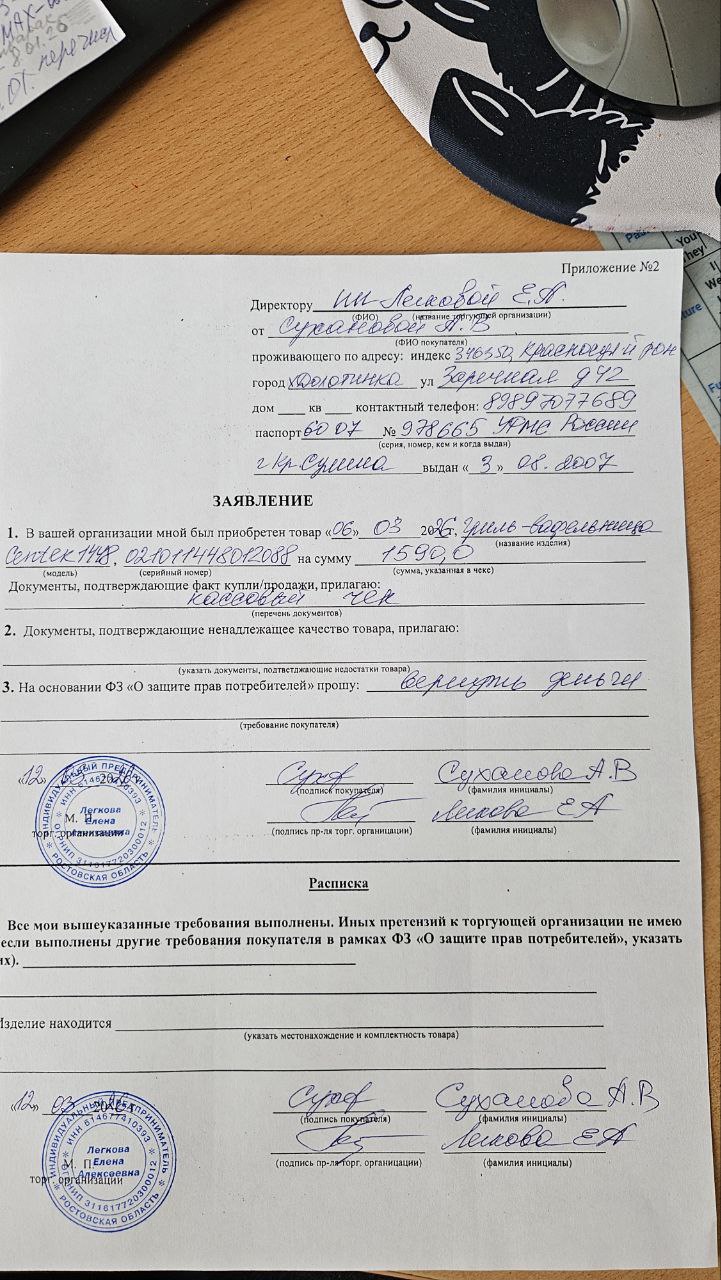 МАХ-
8.01.26
01. перечисл
Pa
You
They
We
Приложение №2
Директору ИП Легковой Е.А.
(ФИО) (название торгующей организации)
от Сухановой А.В
(ФИО покупателя)
проживающего по адресу: индекс 346350, Красносул й
город х ул Заречная д 42
дом ___ кв ___ контактный телефон: 89897077689
паспорт 60 07 № 978665 УФМС России
(серия, номер, кем и когда выдан)
г Кр Сулина выдан « 3 » 08. 2007
ЗАЯВЛЕНИЕ
1. В вашей организации мной был приобретен товар «06» 03 2026г, Гриль-вафельница
(название изделия)
Centek 1448, 021011448012088 на сумму 1590,0
(модель) (серийный номер) (сумма, указанная в чеке)
Документы, подтверждающие факт купли/продажи, прилагаю:
кассовый чек
(перечень документов)
2. Документы, подтверждающие ненадлежащее качество товара, прилагаю:
(указать документы, подтветджающие недостатки товара)
3. На основании ФЗ «О защите прав потребителей» прошу: вернуть деньги
(требование покупателя)
«12» 03 2026г
Сухов Суханова А.В
(подпись покупателя) (фамилия инициалы)
М. П. Легкова Е А
торг. организации (подпись пр-ля торг. органицации) (фамилия инициалы)
ИНДИВИДУАЛЬНЫЙ ПРЕДПРИНИМАТЕЛЬ
ИНН 614677410393
Легкова
Елена
Алексеевна
ОГРНИП 311617720300012
РОСТОВСКАЯ ОБЛАСТЬ
Расписка
Все мои вышеуказанные требования выполнены. Иных претензий к торгующей организации не имею
если выполнены другие требования покупателя в рамках ФЗ «О защите прав потребителей», указать
их).
Изделие находится
(указать местонахождение и комплектность товара)
«12» 03 2026г
Сухов Суханова А.В
(подпись покупателя) (фамилия инициалы)
М. П. Легкова Е А
торг. организации (подпись пр-ля торг. органицации) (фамилия инициалы)
ИНДИВИДУАЛЬНЫЙ ПРЕДПРИНИМАТЕЛЬ
ИНН 614677410393
Легкова
Елена
Алексеевна
ОГРНИП 311617720300012
РОСТОВСКАЯ ОБЛАСТЬ